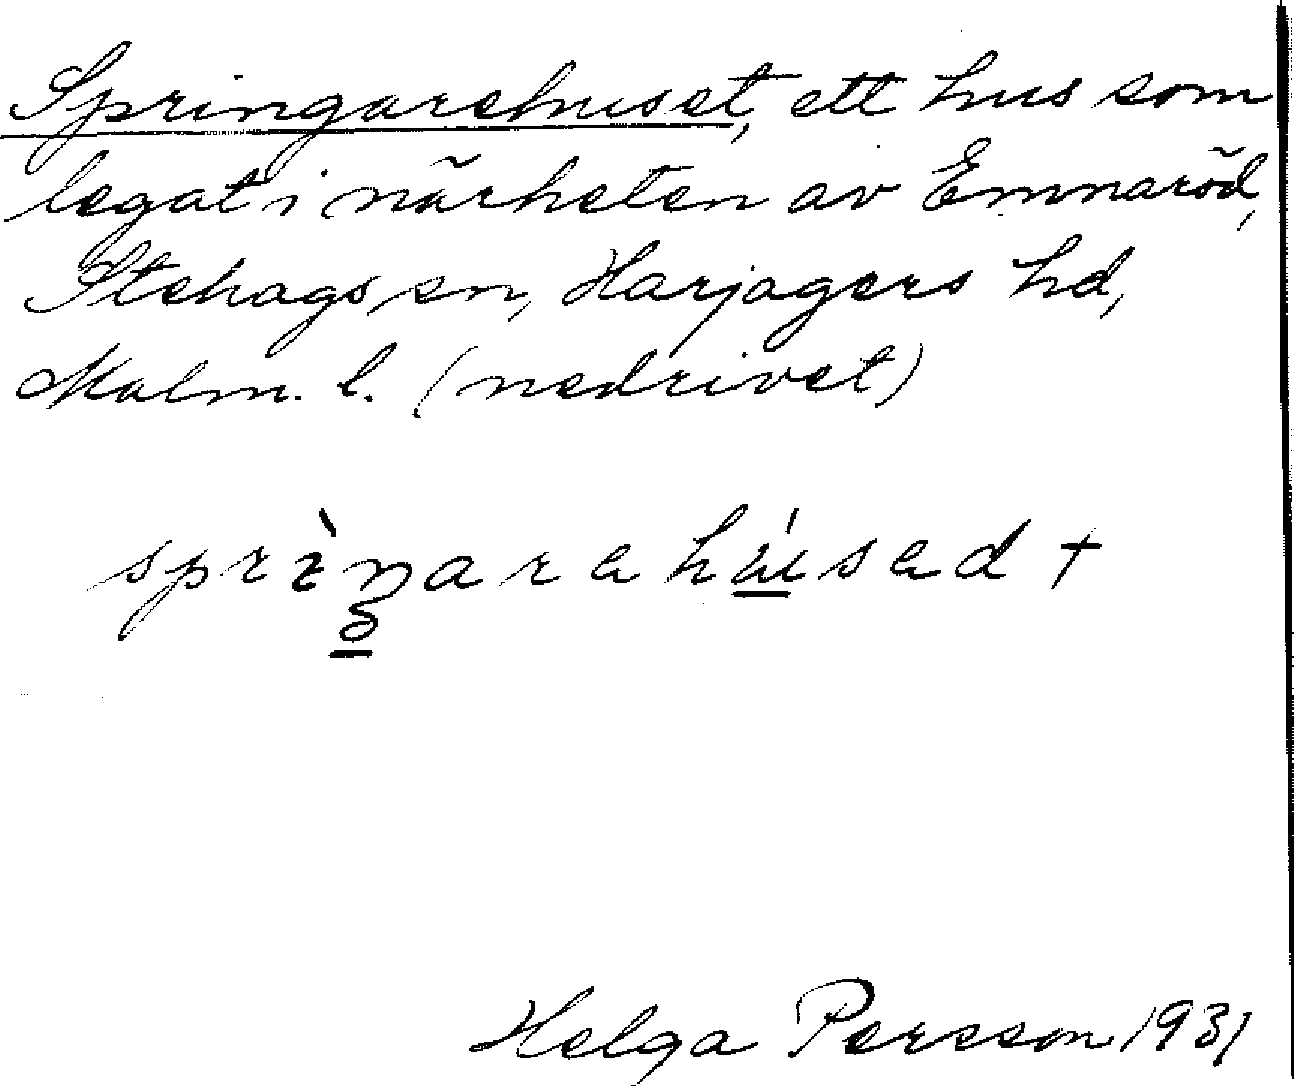 Springarehuset, ett hus som
legat i närheten av Emmaröd,
Stehags sn, Harjagers hd,
Malm. l. (nedrivet)
sprìŋarahúsad +
Helga Persson 1931